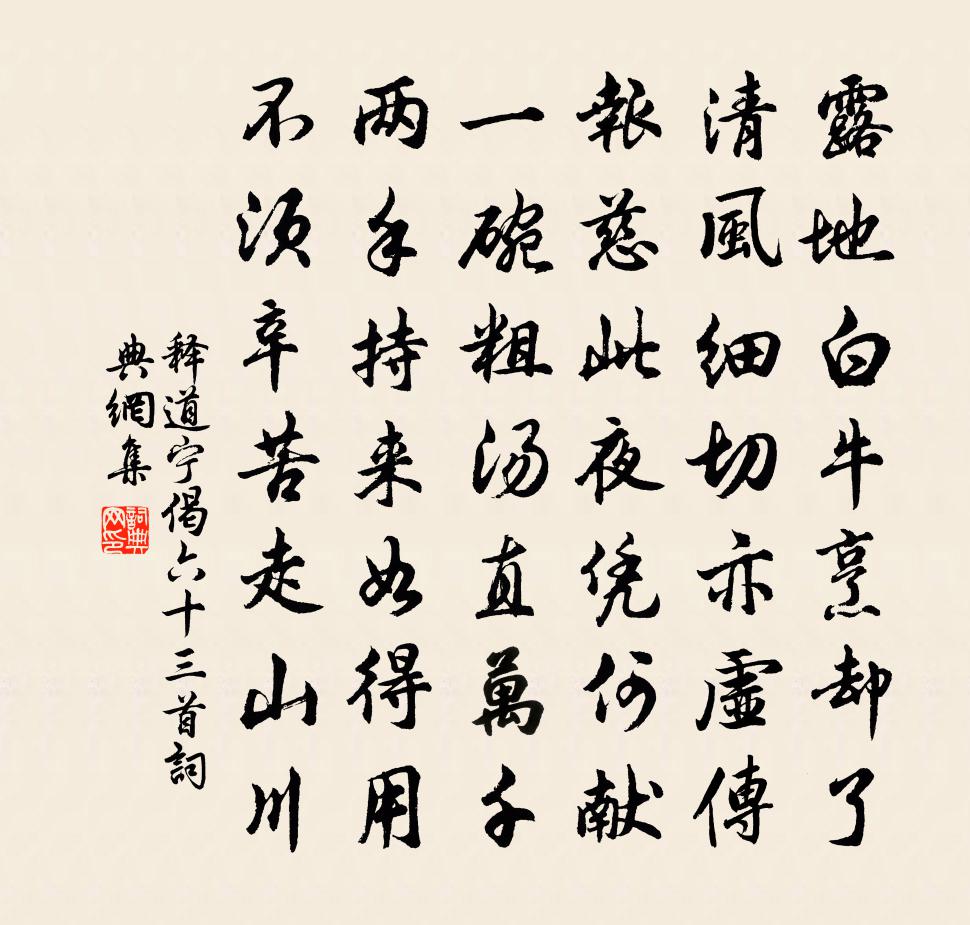 露地白牛烹却了
清風細切亦虛傳
報慈此夜凭何献
一碗粗汤直萬千
两手持来如得用
不须辛苦走山川
释道宁偈六十三首詞
典網集
詞典
网印